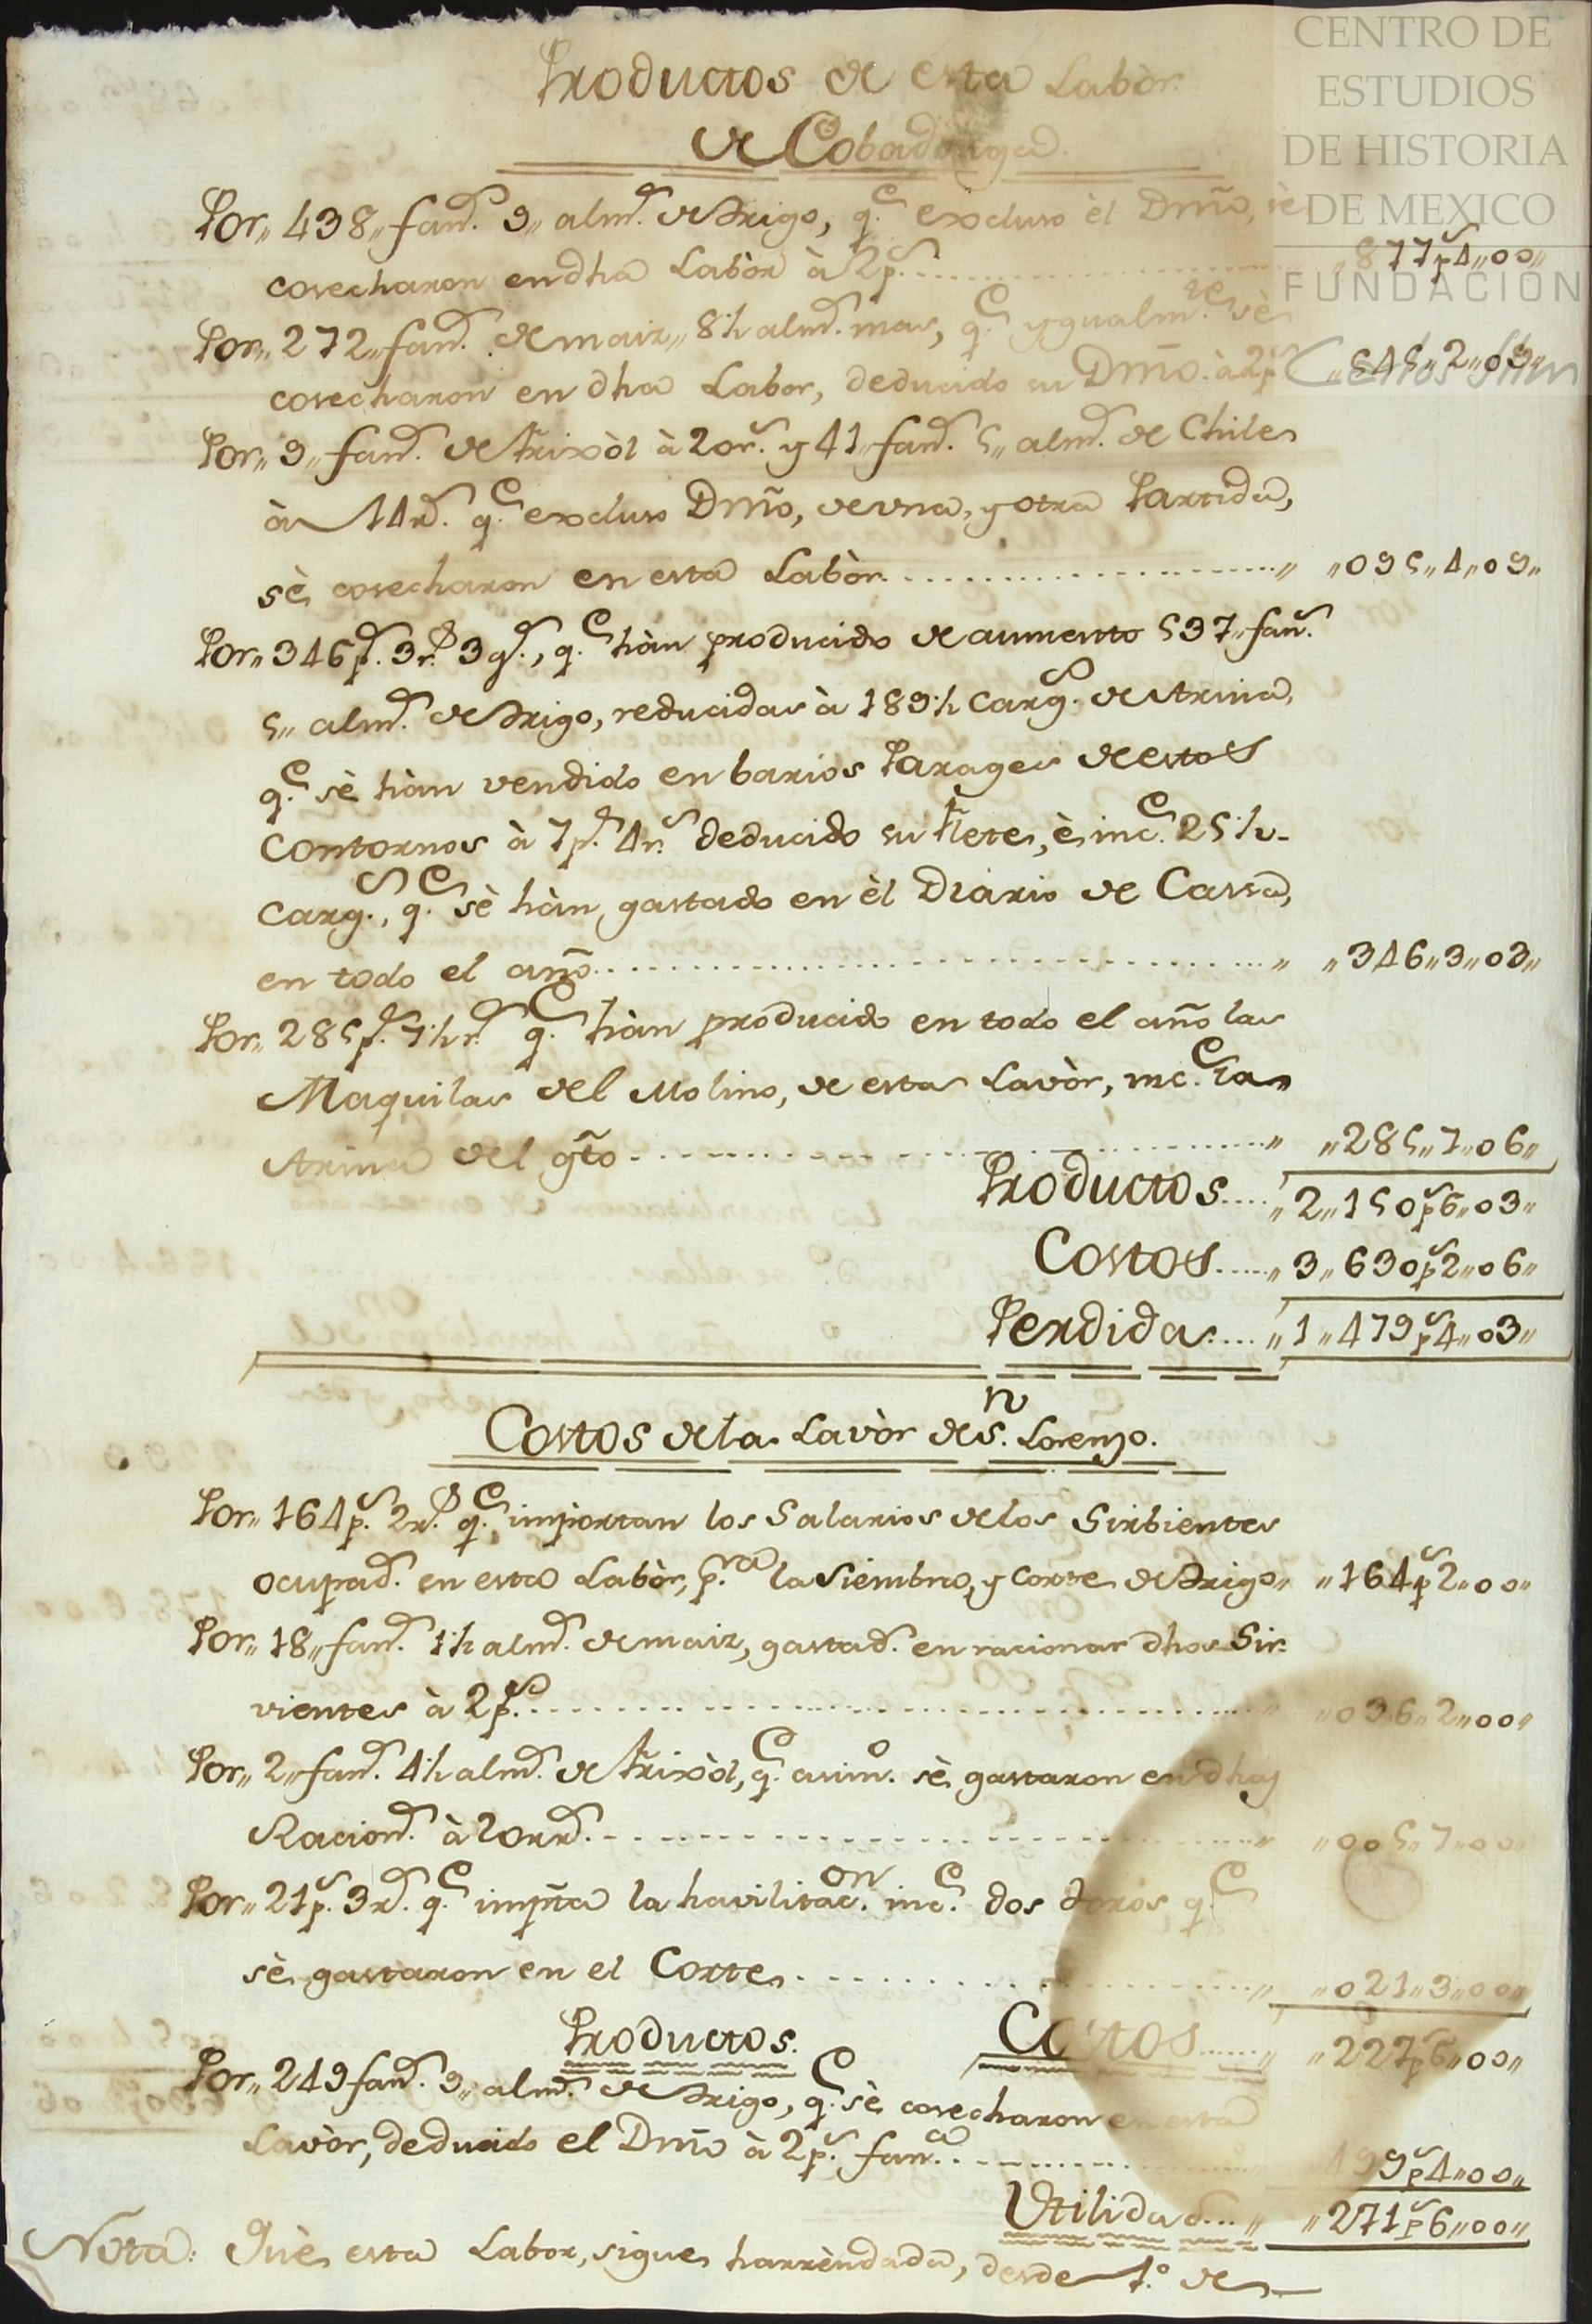 Productos de esta Labòr
de Cobadonga.
Por,, 438,, fans. 9,, alms. de Trigo, q.e excluso èl Dmño, sè
cosecharon en dha Labòr à 2ps. ,,877ps4,,00,,
Por,, 272,, fans. de maiz,, 8½ alms. mas, q.e ygualm.te sè
cosecharon en dha Labor, deducido su Dmño. à 2ps. ,,545,,2,,09,,
Por,, 9,, fans. de frixòl à 20rs. y 41,, fans. 5,, alms. de Chile
à 14rs. q.e excluso Dmño, de una, y otra Partida,
sè cosecharon en esta Labòr ,,095,,4,,09,,
Por,, 346ps. 3rs. 3gs., q.e hàn producido de aumento 537,, fans.
5,, alms. de Trigo, reducidas à 189½ cargs. de Arina,
q.e sè hàn vendido en barios Parages de estos
contornos à 7ps. 4rs. deducido su flete, è inc.e 25½
cargs., q.e sè hàn gastado en èl Diario de Cassa,
en todo el año ,,346,,3,,03,,
Por,, 285ps. 7½rs. q.e hàn producido en todo el año las
Maquilas del Molino, de esta Lavòr, inc.e la
Arina del gto ,,285,,7,,06,,
Productos ,,2,,150ps6,,03,,
Costos ,,3,,630ps2,,06,,
Perdida ,,1,,479ps4,,03,,
Costos de la Lavòr de S.n Lorenzo.
Por,, 164ps. 2rs. q.e importan los Salarios de los Sirbientes
ocupads. en esta Labòr, p.ra la Siembra, y corte de Trigo,, ,,164ps2,,00,,
Por,, 18,, fans. 1½ alms. de maiz, gastads. en racionar dhos Sir-
vientes à 2ps. ,,036,,2,,00,,
Por,, 2,, fans. 4½ alms. de frixòl, q.e asim.o sè gastaron en dhas
Racions. à 20rrs. ,,005,,7,,00,,
Por,, 21ps. 3rs. q.e impta la havilitac.on inc.e dos toros q.e
sè gastaron en el Corte ,,021,,3,,00,,
Costos ,,227ps6,,00,,
Productos.
Por,, 249 fans. 9,, alms. de Trigo, q.e sè cosecharon en esta
Lavòr, deducido el Dmño à 2ps. fan.a ,,499ps4,,00,,
Utilidad ,,271ps6,,00,,
Nota: Què esta Labor, sigue harrèndada, desde 1.o de
CENTRO DE
ESTUDIOS
DE HISTORIA
DE MEXICO
FUNDACIÓN
Carlos Slim